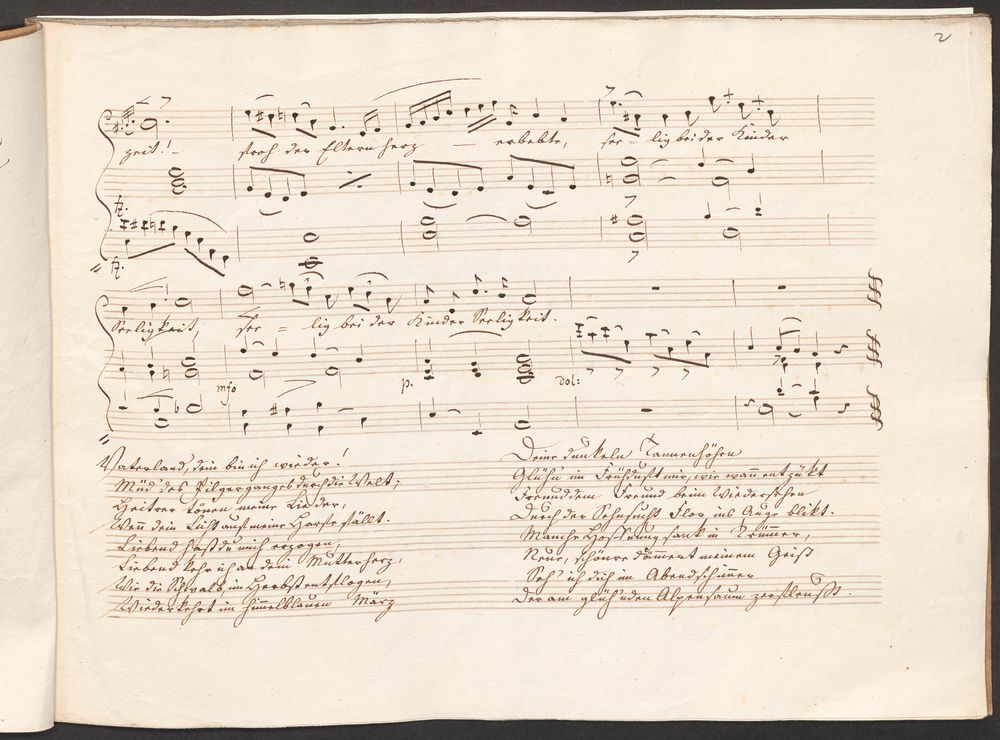 2
zeit! froh der Eltern herz erbebte, see = lig bei der Kinder
fz.
fz.
Seeligkeit, see = lig bei der Kinder Seeligkeit.
mfo p. dol:
Vaterland, dein bin ich wieder!
Müd' des Pilgerganges durch die Welt;
Heitrer tönen meine Lieder,
Wenn dein Licht auf meine Harfe fällt.
Liebend hast du mich erzogen,
Liebend kehr ich an dein Mutterherz,
Wie die Schwalb, im Herbst entflogen,
Wiederkehrt im himelblauen März
Deine dunkeln Tannenhöhen
Glühn im Frühduft mir, wie wann entzükt
Freund dem Freund beim Wiedersehen
Durch der Sehnsucht Flor ins Auge blikt.
Manche Hoffnung sank in Trümmer,
Neue, schönre dämert meinem Geist
Seh' ich dich im Abendschimmer
Der am glüh'nden Alpensaum zerfleußt.